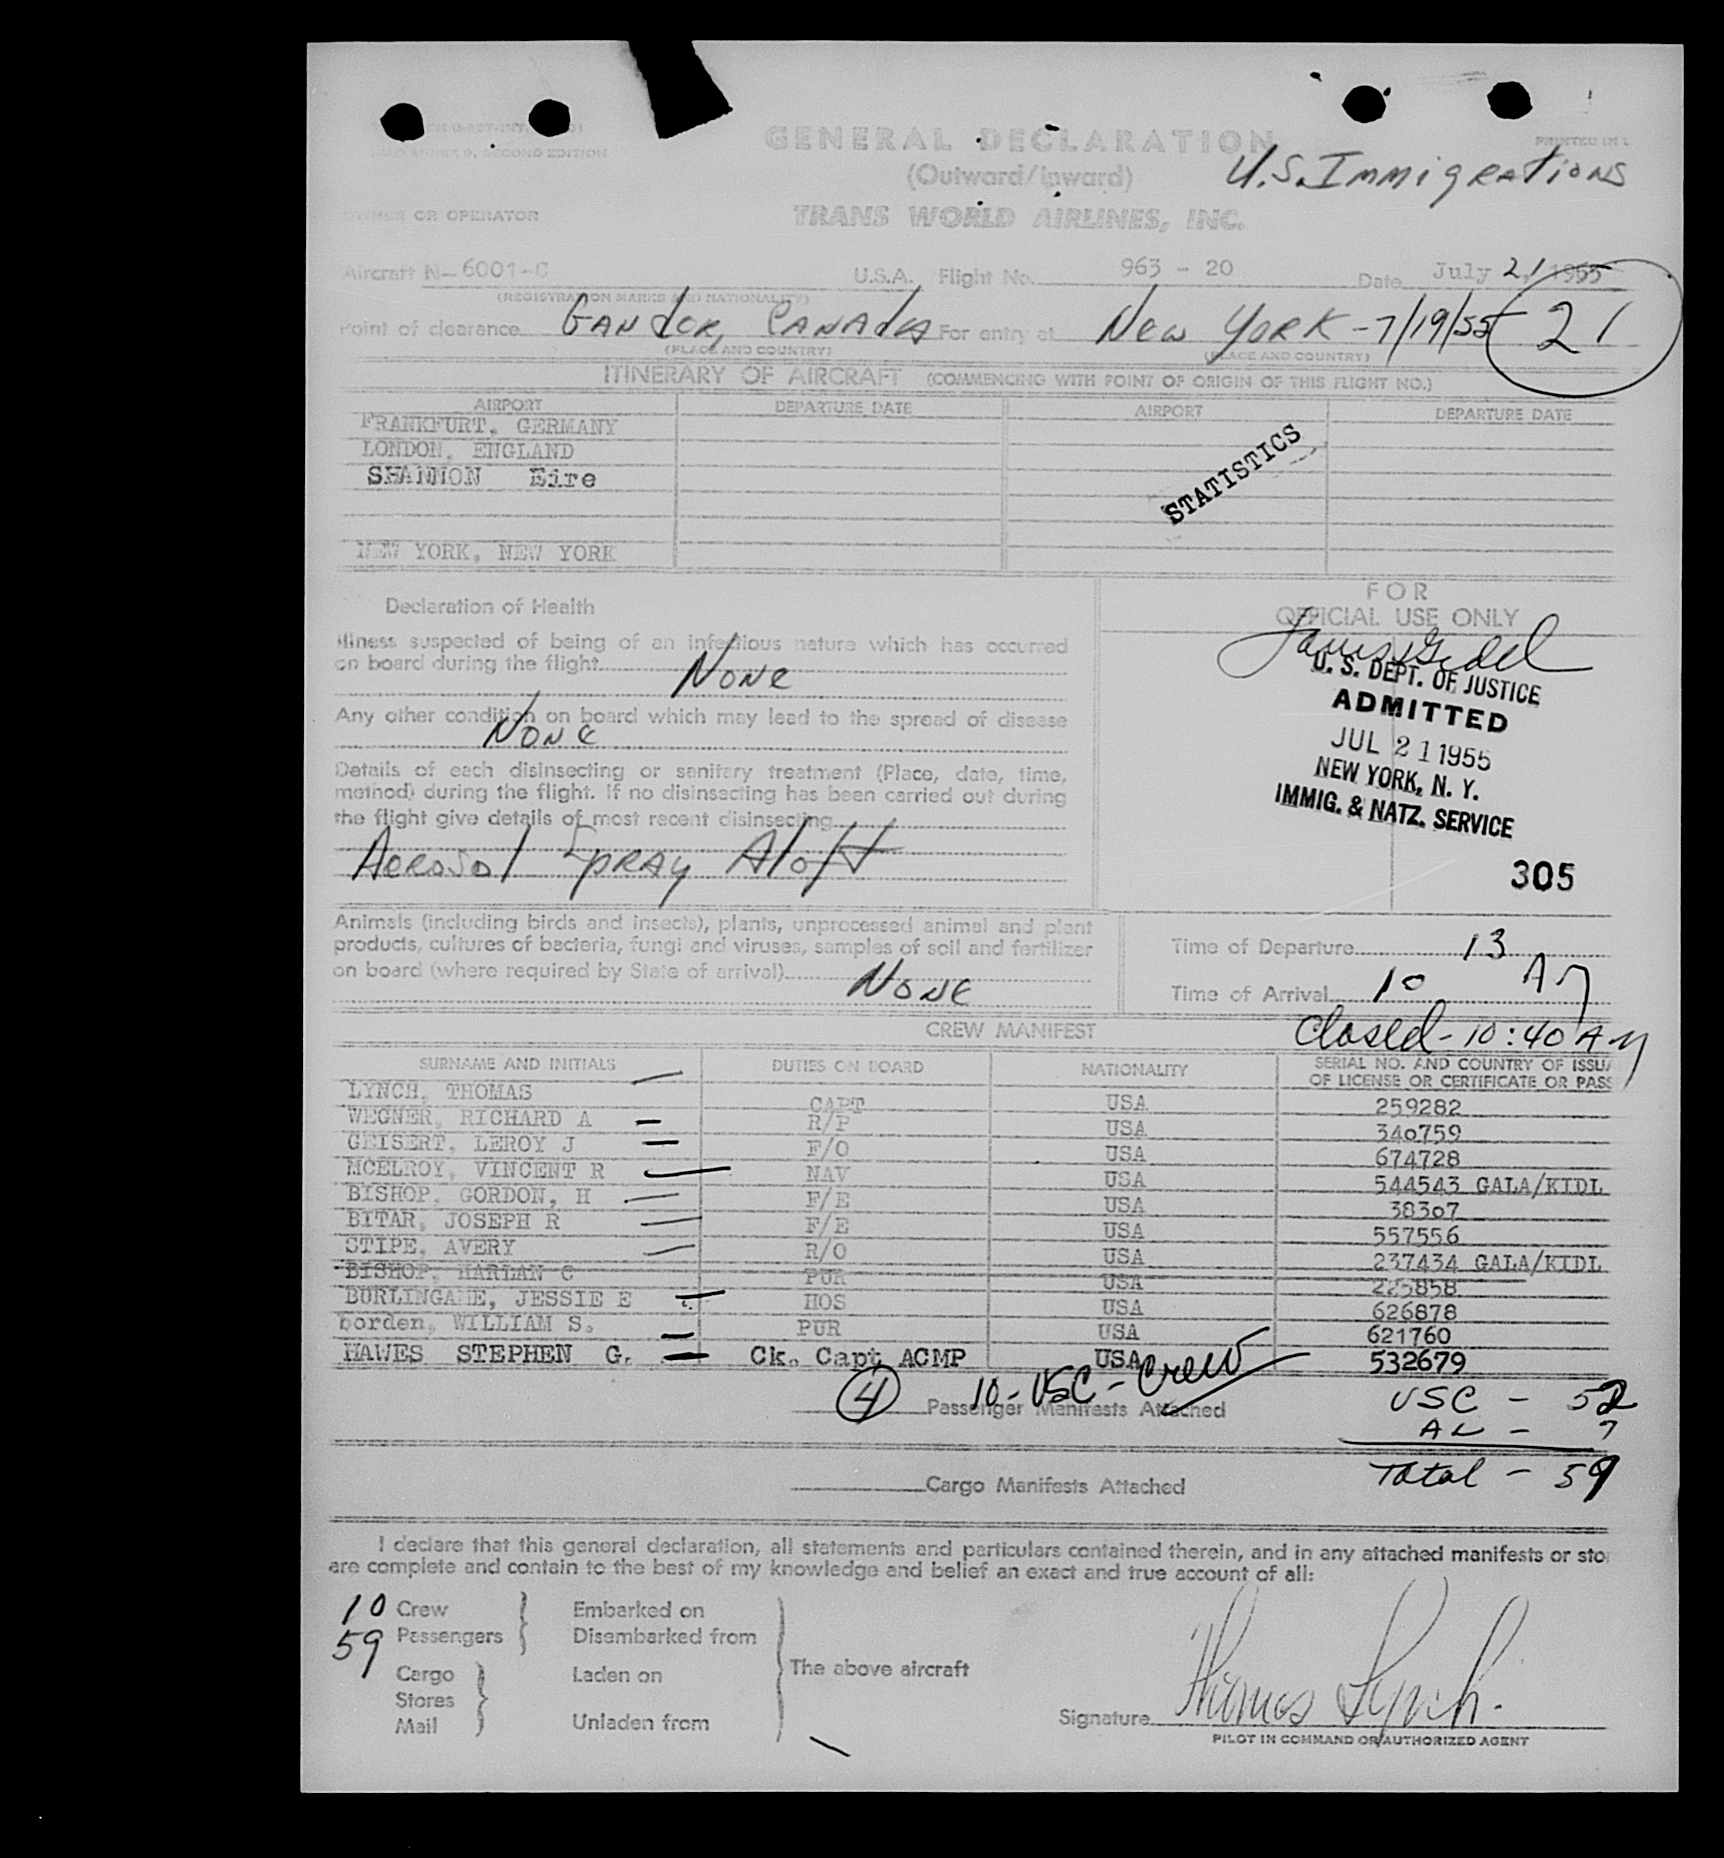 GENERAL DECLARATION
(Outward/Inward)
U.S. Immigrations
SECOND EDITION
OWNER OR OPERATOR
TRANS WORLD AIRLINES, INC.
Aircraft N-6001-C U.S.A. Flight No. 963 - 20 Date July 21, 1955
(REGISTRATION MARKS AND NATIONALITY)
Point of clearance Gander, Canada For entry at New York - 7/19/55 21
(PLACE AND COUNTRY) (PLACE AND COUNTRY)
ITINERARY OF AIRCRAFT (COMMENCING WITH POINT OF ORIGIN OF THIS FLIGHT NO.)
AIRPORT DEPARTURE DATE AIRPORT DEPARTURE DATE
FRANKFURT, GERMANY
LONDON, ENGLAND
SHANNON Eire
STATISTICS
NEW YORK, NEW YORK
FOR
OFFICIAL USE ONLY
Declaration of Health
Illness suspected of being of an infectious nature which has occurred
on board during the flight None
Any other condition on board which may lead to the spread of disease
None
Details of each disinsecting or sanitary treatment (Place, date, time,
method) during the flight. If no disinsecting has been carried out during
the flight give details of most recent disinsecting
Aerosol Spray Aloft
U. S. DEPT. OF JUSTICE
ADMITTED
JUL 21 1955
NEW YORK, N. Y.
IMMIG. & NATZ. SERVICE
305
Animals (including birds and insects), plants, unprocessed animal and plant
products, cultures of bacteria, fungi and viruses, samples of soil and fertilizer
on board (where required by State of arrival) None
Time of Departure 13
Time of Arrival 10 AM
Closed - 10:40 AM
CREW MANIFEST
SURNAME AND INITIALS DUTIES ON BOARD NATIONALITY SERIAL NO. AND COUNTRY OF ISSU
OF LICENSE OR CERTIFICATE OR PASS
LYNCH, THOMAS CAPT USA 259282
WEGNER, RICHARD A R/P USA 340759
GEISERT, LEROY J F/O USA 674728
MCELROY, VINCENT R NAV USA 544543 GALA/KIDL
BISHOP, GORDON, H F/E USA 38307
BITAR, JOSEPH R F/E USA 557556
STIPE, AVERY R/O USA 237434 GALA/KIDL
BISHOP, HARLAN C PUR USA 225858
BURLINGAME, JESSIE E HOS USA 626878
borden, WILLIAM S. PUR USA 621760
HAWES STEPHEN G. Ck. Capt ACMP USA 532679
10 - USC - Crew
4 Passenger Manifests Attached
USC - 52
AL - 7
Total - 59
Cargo Manifests Attached
I declare that this general declaration, all statements and particulars contained therein, and in any attached manifests or sto
are complete and contain to the best of my knowledge and belief an exact and true account of all:
10 Crew Embarked on
59 Passengers Disembarked from
The above aircraft
Cargo Laden on
Stores
Mail Unladen from
Signature Thomas Lynch
PILOT IN COMMAND OR AUTHORIZED AGENT